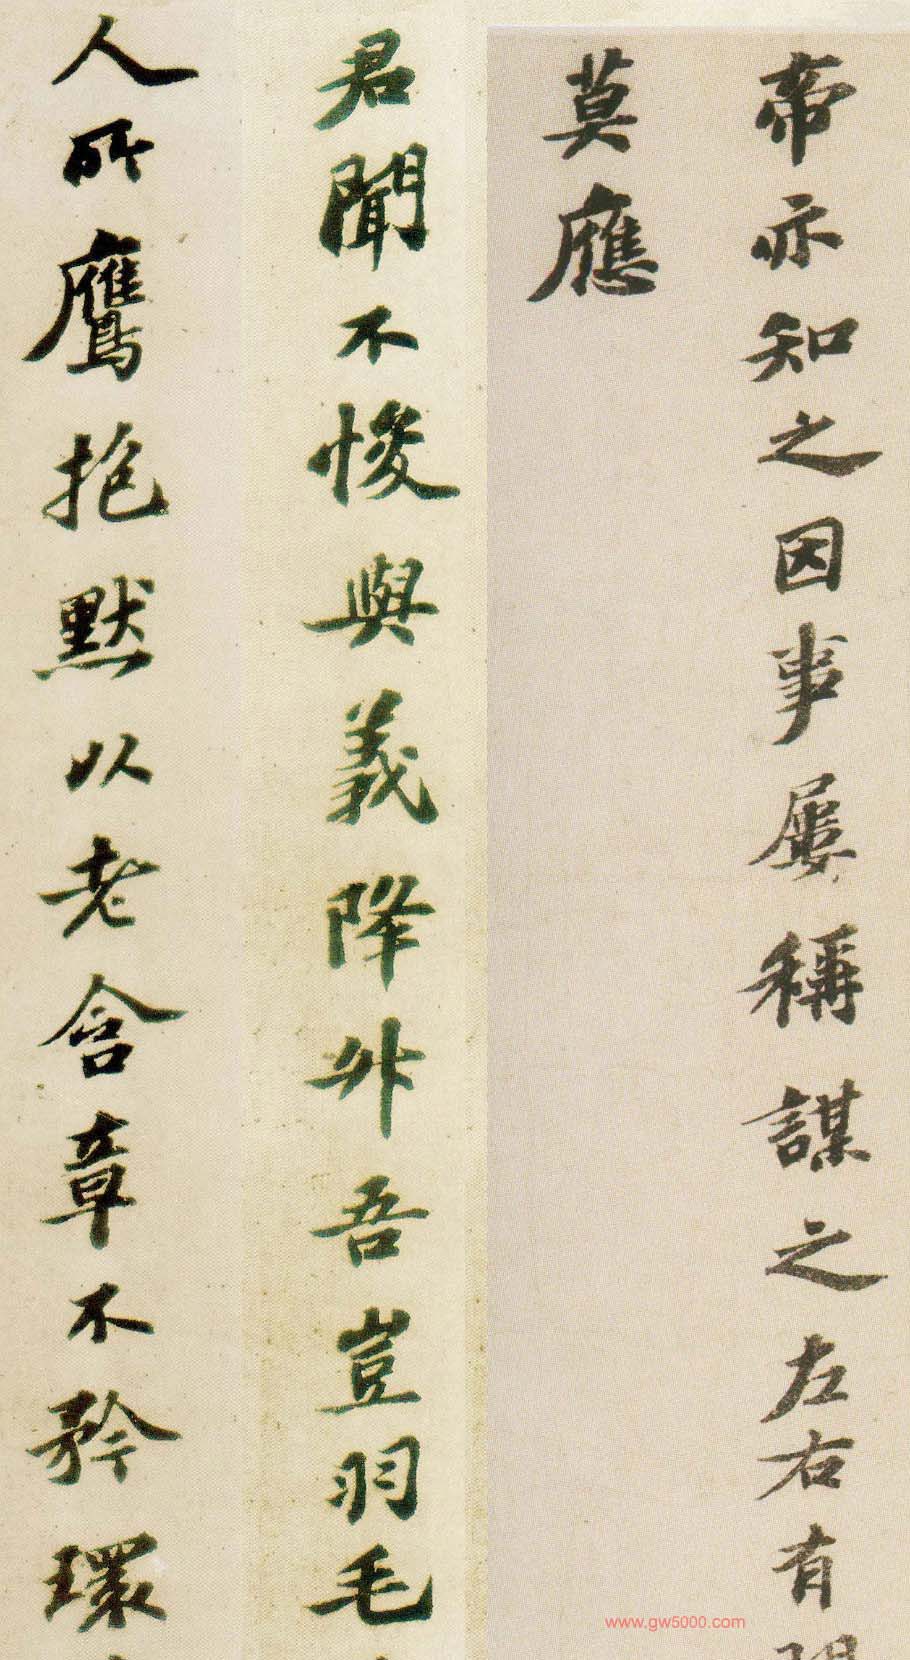 帝亦知之因事屢稱謀之左右有
莫應
君聞不悛與義降外吾豈羽毛
人所鷹抱默以老含章不矜環
www.gw5000.com